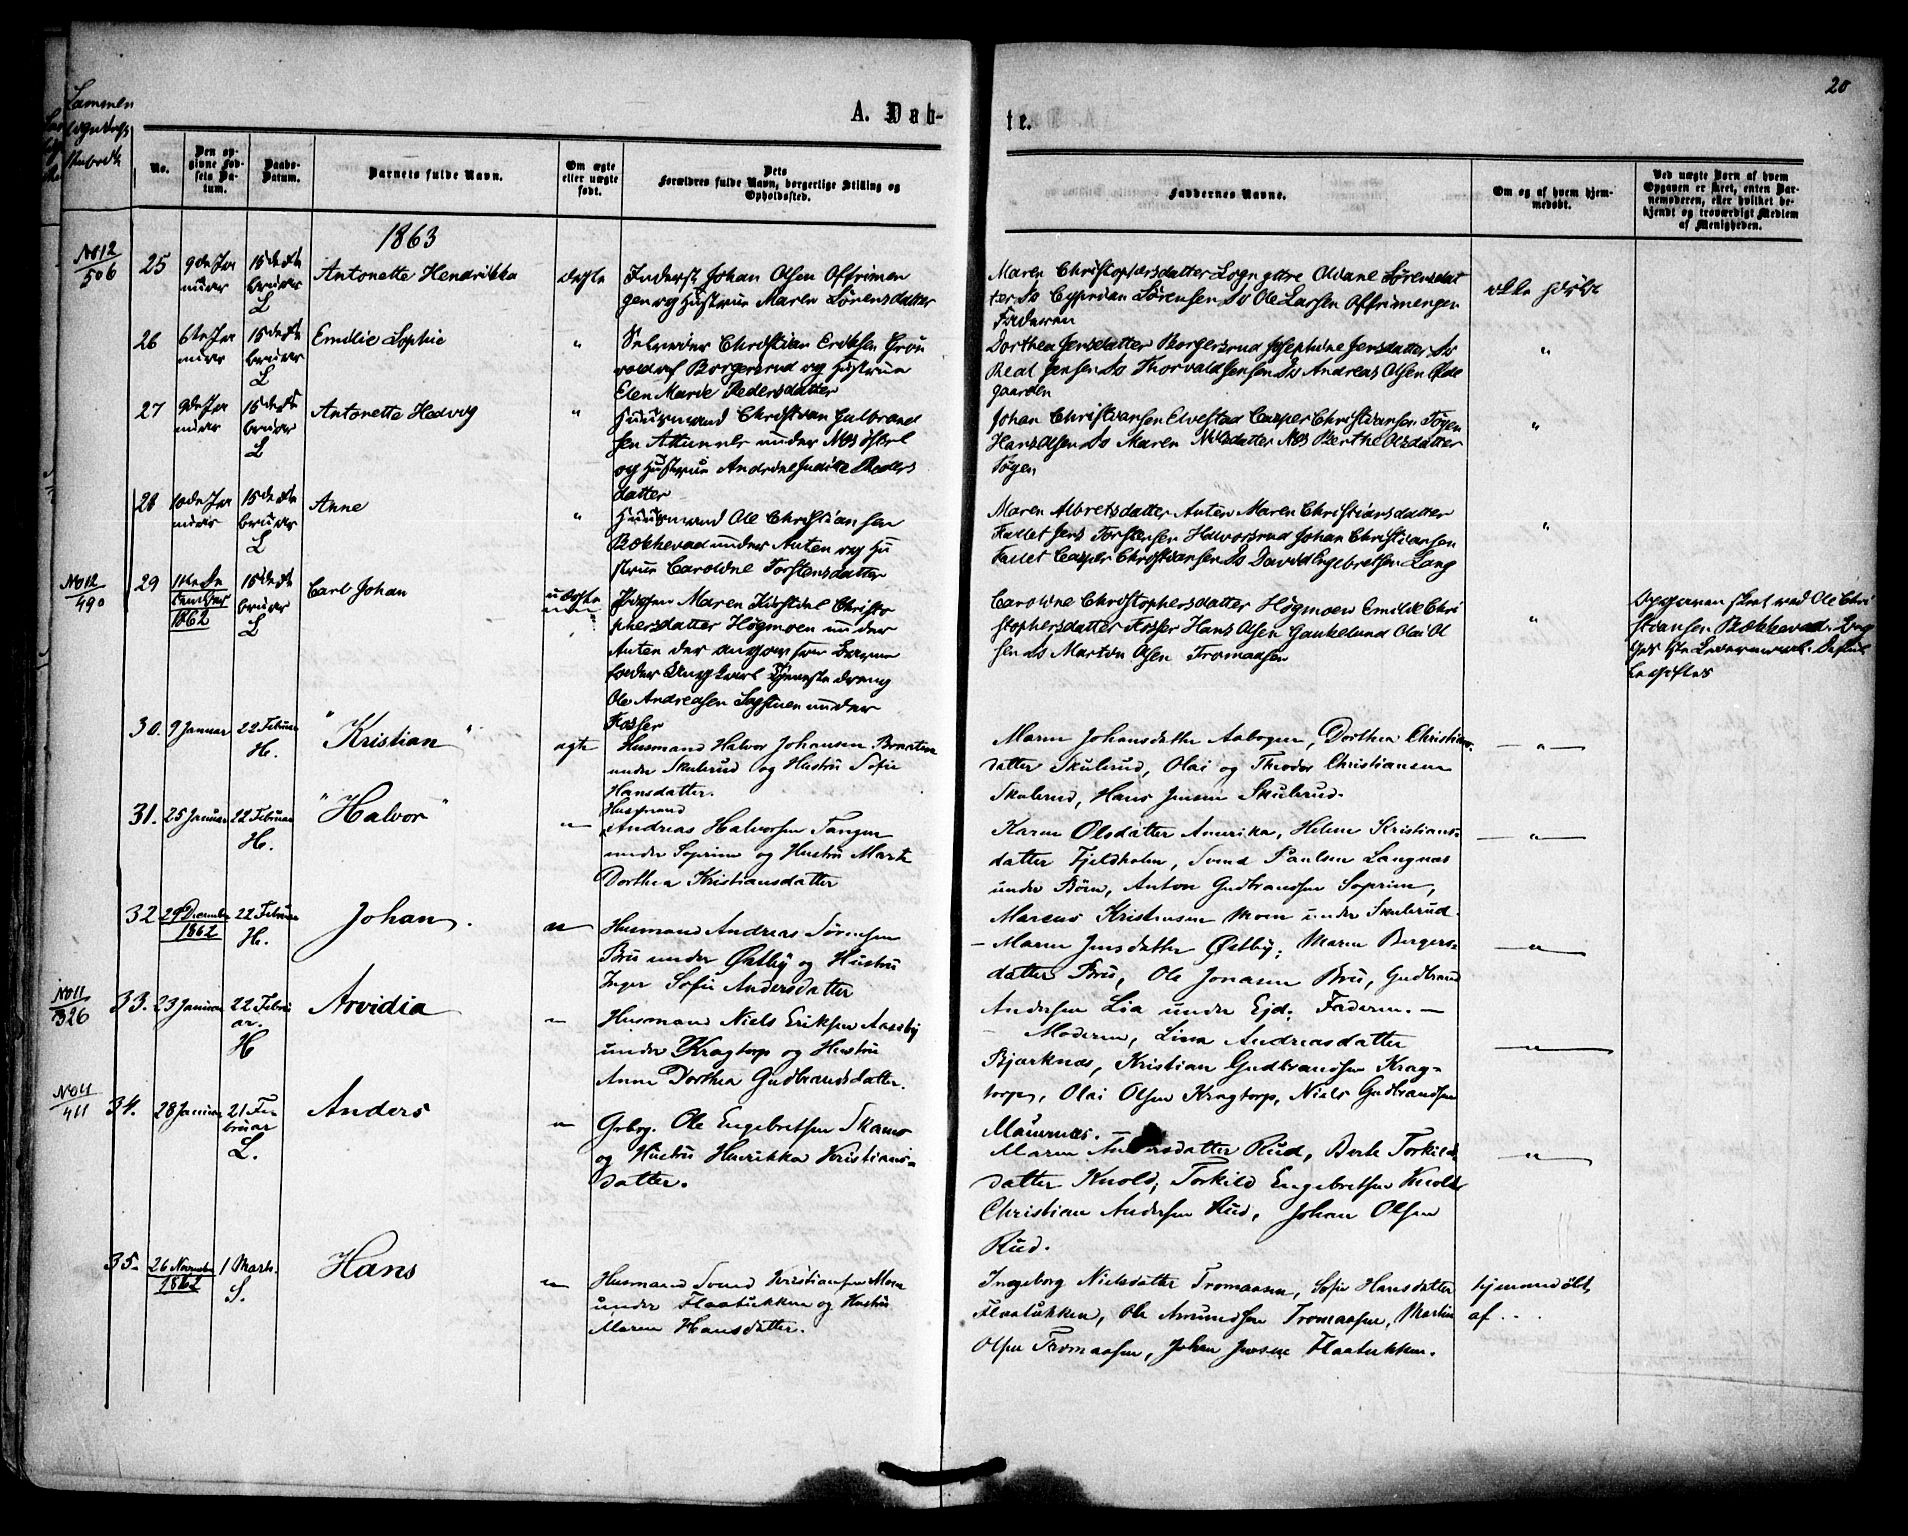 20
A. Døb-
te.
No.
Den op-
givne Fød-
sels Da-
tum.
Daabs-
Datum.
Barnets fulde Navn.
Om ægte
eller uægte
født.
Dets
Forældres fulde Navn, borgerlige Stilling og
Opholdssted.
Faddernes Navne.
Om og af hvem hjem-
medøbt.
Ved uægte Børn af hvem
Opgaven er skeet, enten Bar-
nemoderen, eller hvilket be-
kjendt og troværdigt Medlem
af Menigheden.
1863
No 12
506
25
9de Ja
nuar
15de Fe
bruar
L
Antonette Hendrikka
ægte
Inderst Johan Olsen
og Hustrue Maren Sørensdatter
Maren Christophersdatter Sogn Oldane Sørensdat
ter Do Cyprian Sørensen Do Ole Larsen
Faderen
ikke
26
6te Ja
nuar
15de Fe
bruar
L
Emilie Sophie
"
Selveier Christian Eriksen
Borgersrud og Hustrue
Elen Marie Pedersdatter
Dorthea Jensdatter Borgersrud Josephine Jensdatter Do
Jensen Do Thorvald Jensen Do Andreas Olsen Øde
gaarden
"
27
9de Ja
nuar
15de Fe
bruar
L
Antonette Hedvig
"
Huusmand Christian Gulbrand
sen under Næs
og Hustrue Andrine Peders
datter
Johan Christiansen Elvestad Casper Christiansen
Hans Olsen Do Maren Nilsdatter Næs Berthe Olsdatter
"
28
10de Ja
nuar
15de Fe
bruar
L
Anne
"
Huusmand Ole Christiansen
Bækkevad under Anten og Hu
strue Caroline Torstensdatter
Maren Albretsdatter Anten Maren Christiansdatter
Fallet Jens Torstensen Halvorsrud Johan Christiansen
Fallet Casper Christiansen Do David Engebretsen Lang
"
No 12
490
29
11te De
cember
1862
15de Fe
bruar
L
Carl Johan
uægte
Pigen Maren Kirstine Christo
phersdatter Høgmoen under
Anten der angav som Barne
fader Ungkarl Tjenestedreng
Ole Andreasen Sagstuen under
Fosser
Caroline Christophersdatter Høgmoen Emilie Chri
stophersdatter Fosser Hans Olsen Gaukelund Olai Ol
sen Do Martin Olsen Tromaasen
"
Opgaven skeet ved Ole Chri
stiansen Bækkevad.
30.
9 Januar
22 Februar
H.
"Kristian"
ægte
Husmand Halvor Johansen Braaten
under Skulerud og Hustru Sofie
Hansdatter.
Maren Johansdatter Aabogen, Dorthea Christians-
datter Skulerud, Olai og Theodor Christiansen
Skulerud, Hans Jensen Skulerud.
— " —
31.
25 Januar
22 Februar
H.
"Halvor"
— " —
Husmand
Andreas Halvorsen Tangen
under Soprim og Hustru Marte
Dorthea Kristiansdatter
Karen Olsdatter Amerika, Helene Kristians-
datter Fjeldholm, Svend Paulsen Langnæs
under Børn, Anton Gudbrandsen Soprim,
Marcus Kristensen Moen under Skulerud.
— " —
32
29 December
1862
22 Februar
H.
Johan.
— " —
Husmand Andreas Sørensen
Bru under Østby og Hustru
Inger Sofie Andersdatter
— Maren Jensdatter Østby, Maren Bergers-
datter Bru, Ole Jonasen Bru, Gudbrand
Andersen Lia under Ejd. Faderen. —
— " —
No 11
326
33.
23 Januar
22 Febru
ar.
H
Arvidia
— " —
Husmand Niels Eriksen Aaseby
under Kragtorp og Hustru
Anne Dorthea Gudbrandsdatter.
— Moderen, Lina Andreasdatter
Bjørknæs, Kristian Gudbrandsen Krag-
torp, Olai Olsen Kragtorp, Niels Gudbrandsen
Maurnæs.
— " —
No 11
411
34.
28 Januar
21 Fe-
bruar
L.
Anders
— " —
Grbrg. Ole Engebretsen Skamo
og Hustru Henrikka Kristians-
datter.
Maren Andersdatter Rud, Berte Torkilds-
datter Knold, Torkild Engebretsen Knold,
Christian Andersen Rud, Johan Olsen
Rud.
— " —
35.
26 November
1862
1 Marts.
S.
Hans
— " —
Husmand Svend Kristiansen Moen
under Flaatukken og Hustru
Maren Hansdatter.
Ingeborg Nielsdatter Tromaasen, Sofie Hansdatter
Flaatukken, Ole Amundsen Tromaasen, Martin
Olsen Tromaasen, Johan Jensen Flaatukken.
hjemmedøbt,
af . . .